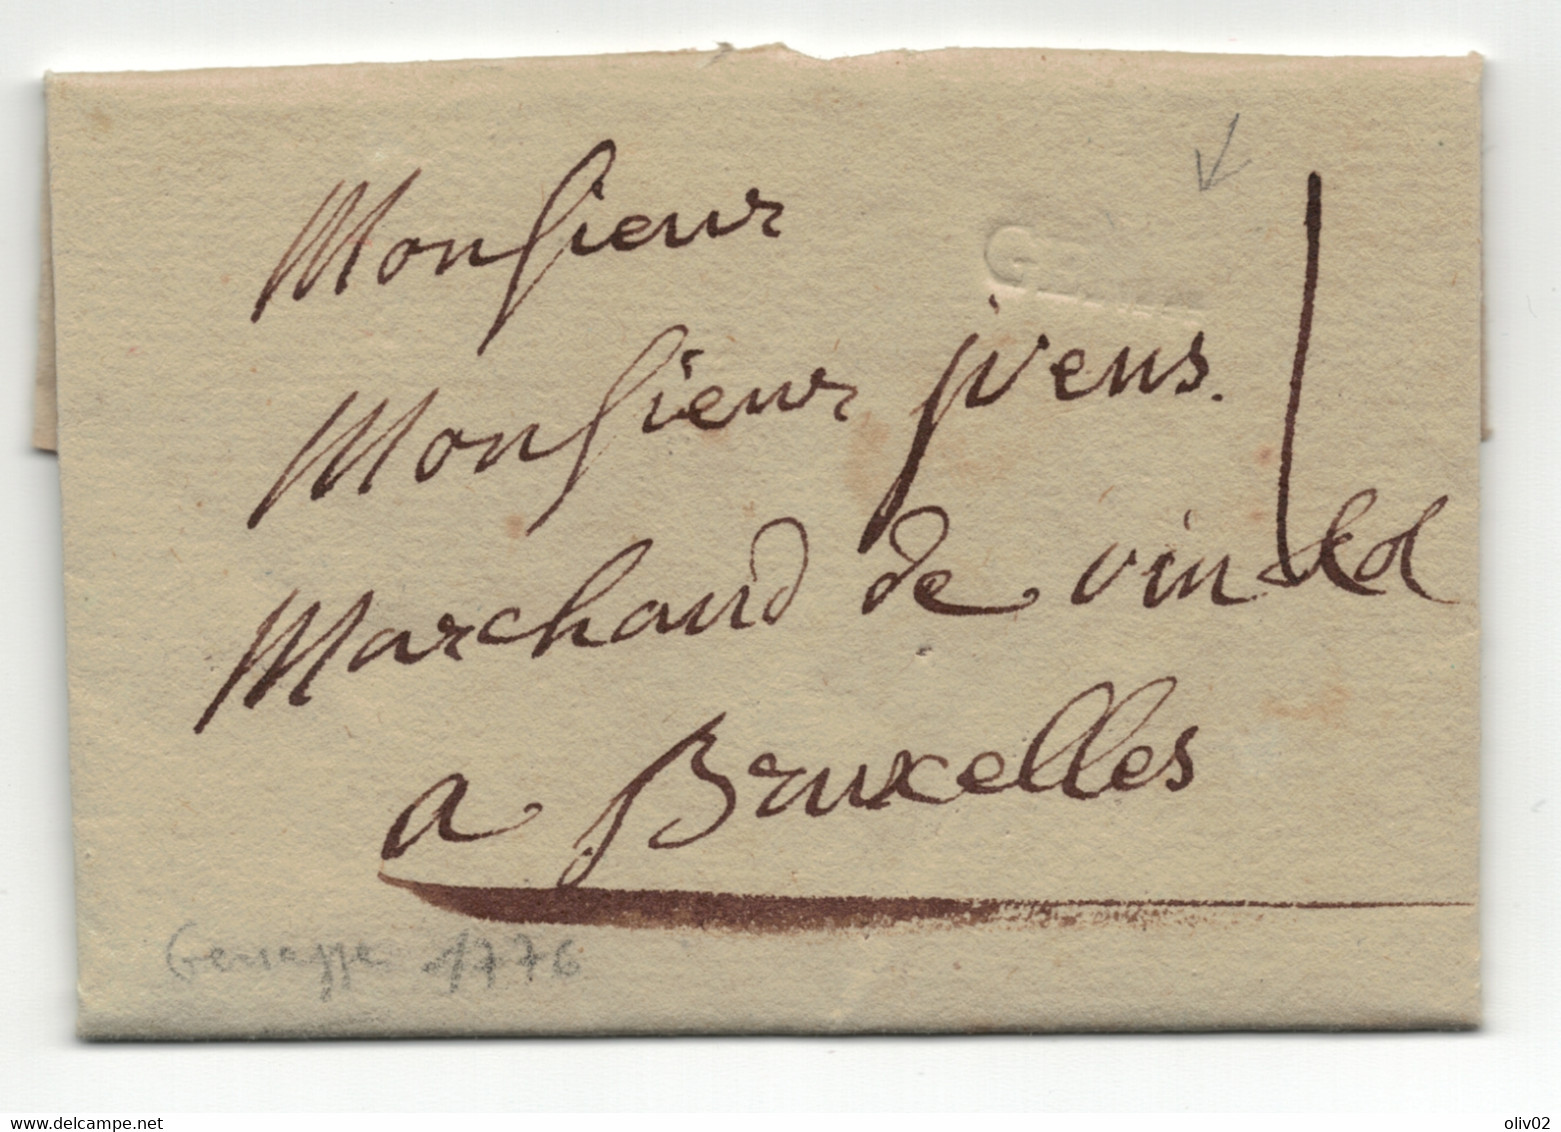 Monsieur
Monsieur jvens.
Marchand de vin
a Bruxelles
Genappe 1776
delcampe.net
oliv02